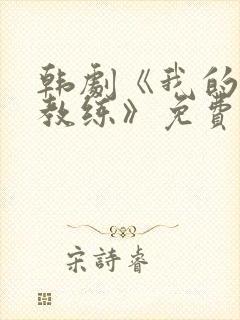 韩劇《我的
教练》免費
宋詩睿